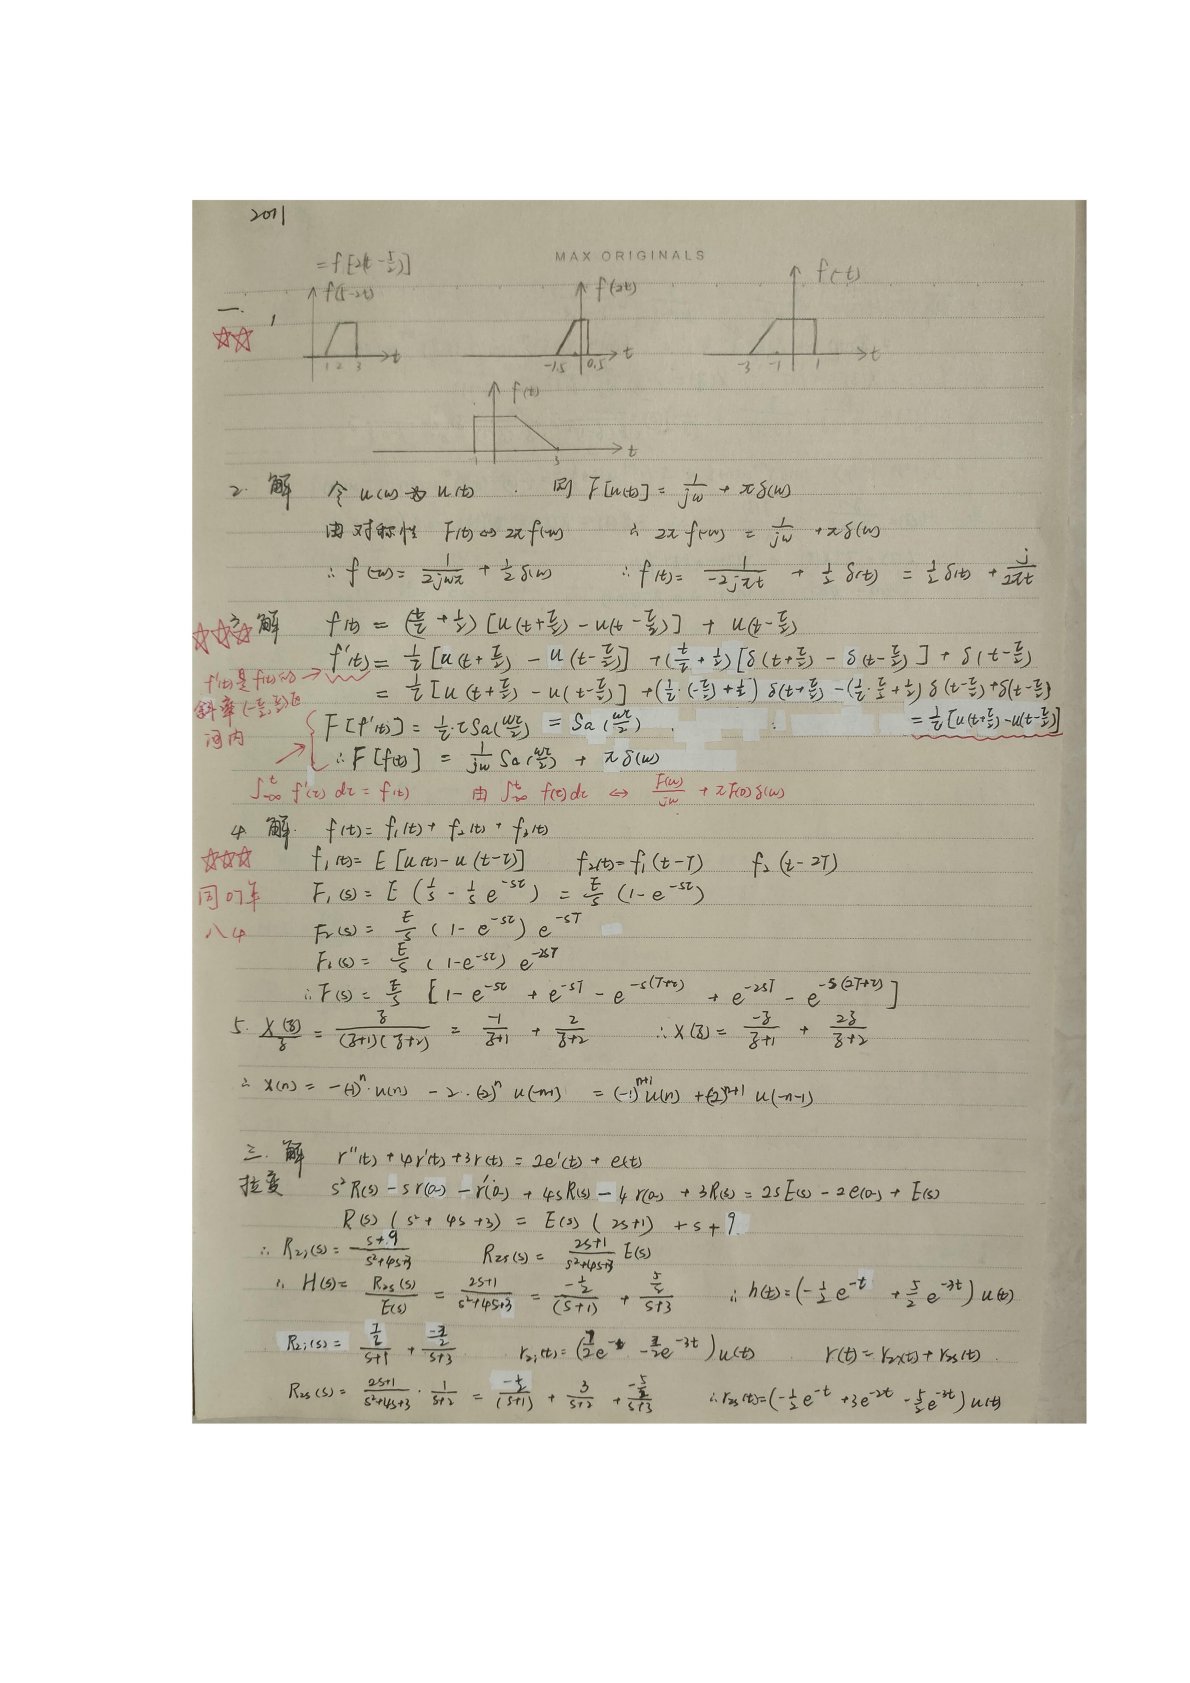 2011
MAX ORIGINALS
=f[2(t-5/2)]
f(5-2t) f(2t) f(-t)
一. 1
1 2 3 t -1.5 0.5 t -3 -1 1 t
f(t)
1 3 t
2. 解 令 u(w) 为 u(t) . 则 F[u(t)] = 1/jw + πδ(w)
由对称性 F(t)⇔2πf(-w) ∴ 2πf(-w) = 1/jw + πδ(w)
∴ f(-w) = 1/(2jwπ) + 1/2 δ(w) ∴ f(t) = 1/(-2jπt) + 1/2 δ(t) = 1/2 δ(t) + j/(2πt)
☆☆☆ 3 解 f(t) = (t/τ + 1/2) [u(t+τ/2) - u(t-τ/2)] + u(t-τ/2)
f'(t) = 1/τ [u(t+τ/2) - u(t-τ/2)] + (t/τ + 1/2) [δ(t+τ/2) - δ(t-τ/2)] + δ(t-τ/2)
f'(t)是f(t)的
= 1/τ [u(t+τ/2) - u(t-τ/2)] + (1/τ·(-τ/2) + 1/2) δ(t+τ/2) - (1/τ·τ/2 + 1/2) δ(t-τ/2) + δ(t-τ/2)
斜率(-τ/2, τ/2)区间内
F[f'(t)] = 1/τ·τSa(wτ/2) = Sa(wτ/2) = 1/τ[u(t+τ/2) - u(t-τ/2)]
∴ F[f(t)] = 1/jw Sa(wτ/2) + πδ(w)
∫-∞^t f'(τ)dτ = f(t) 由 ∫-∞^t f(τ)dτ ⇔ F(w)/jw + πF(0)δ(w)
4 解. f(t) = f₁(t) + f₂(t) + f₃(t)
☆☆☆ f₁(t) = E[u(t) - u(t-τ)] f₂(t) = f₁(t-T) f₂(t-2T)
同07年 F₁(s) = E(1/s - 1/s e^-sτ) = E/s (1-e^-sτ)
八4 F₂(s) = E/s (1-e^-sτ) e^-sT
F₃(s) = E/s (1-e^-sτ) e^-2sT
∴ F(s) = E/s [1-e^-sτ + e^-sT - e^-s(T+τ) + e^-2sT - e^-s(2T+τ)]
5. X(z)/z = z/((z+1)(z+2)) = -1/(z+1) + 2/(z+2) ∴ X(z) = -z/(z+1) + 2z/(z+2)
∴ x(n) = -(-1)^n·u(n) - 2·(-2)^n u(-n-1) = (-1)^n+1 u(n) + (-2)^n+1 u(-n-1)
三. 解 r''(t) + 4r'(t) + 3r(t) = 2e'(t) + e(t)
拉变 s²R(s) - sr(0-) - r'(0-) + 4sR(s) - 4r(0-) + 3R(s) = 2sE(s) - 2e(0-) + E(s)
R(s)(s²+4s+3) = E(s)(2s+1) + s+9
∴ Rzi(s) = (s+9)/(s²+4s+3) Rzs(s) = (2s+1)/(s²+4s+3) E(s)
∴ H(s) = Rzs(s)/E(s) = (2s+1)/(s²+4s+3) = (-1/2)/(s+1) + (5/2)/(s+3) ∴ h(t) = (-1/2 e^-t + 5/2 e^-3t) u(t)
Rzi(s) = (7/2)/(s+1) + /(s+3) rzi(t) = (7/2 e^-t - e^-3t) u(t) r(t) = rzi(t) + rzs(t)
Rzs(s) = (2s+1)/(s²+4s+3) · 1/(s+2) = (-1/2)/(s+1) + 3/(s+2) + (-5/2)/(s+3) ∴ rzs(t) = (-1/2 e^-t + 3e^-2t - 5/2 e^-3t) u(t)